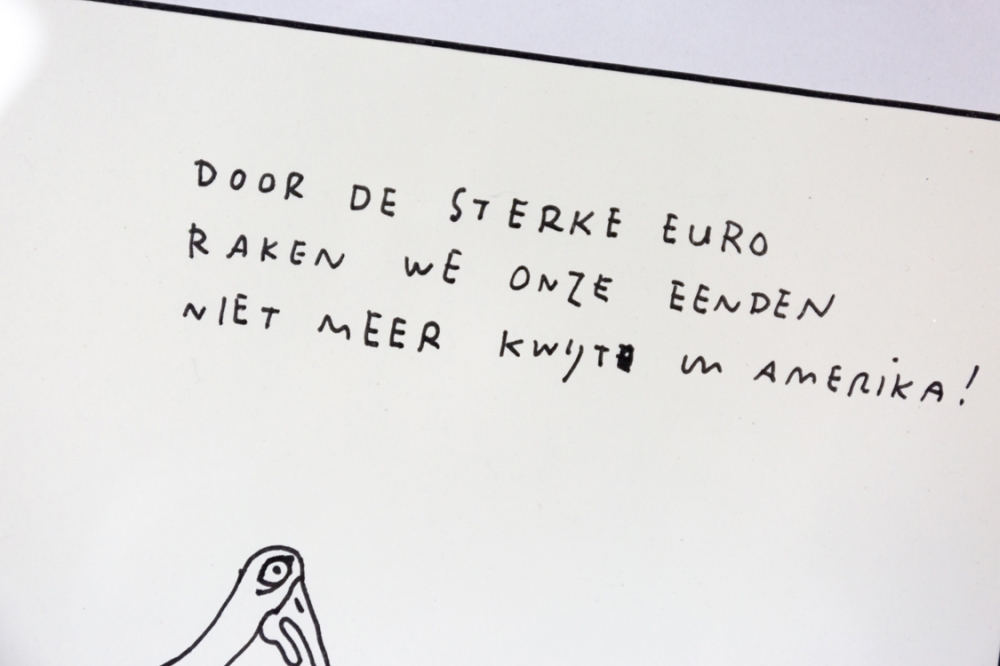 DOOR DE STERKE EURO
RAKEN WE ONZE EENDEN
NIET MEER KWIJT IN AMERIKA!